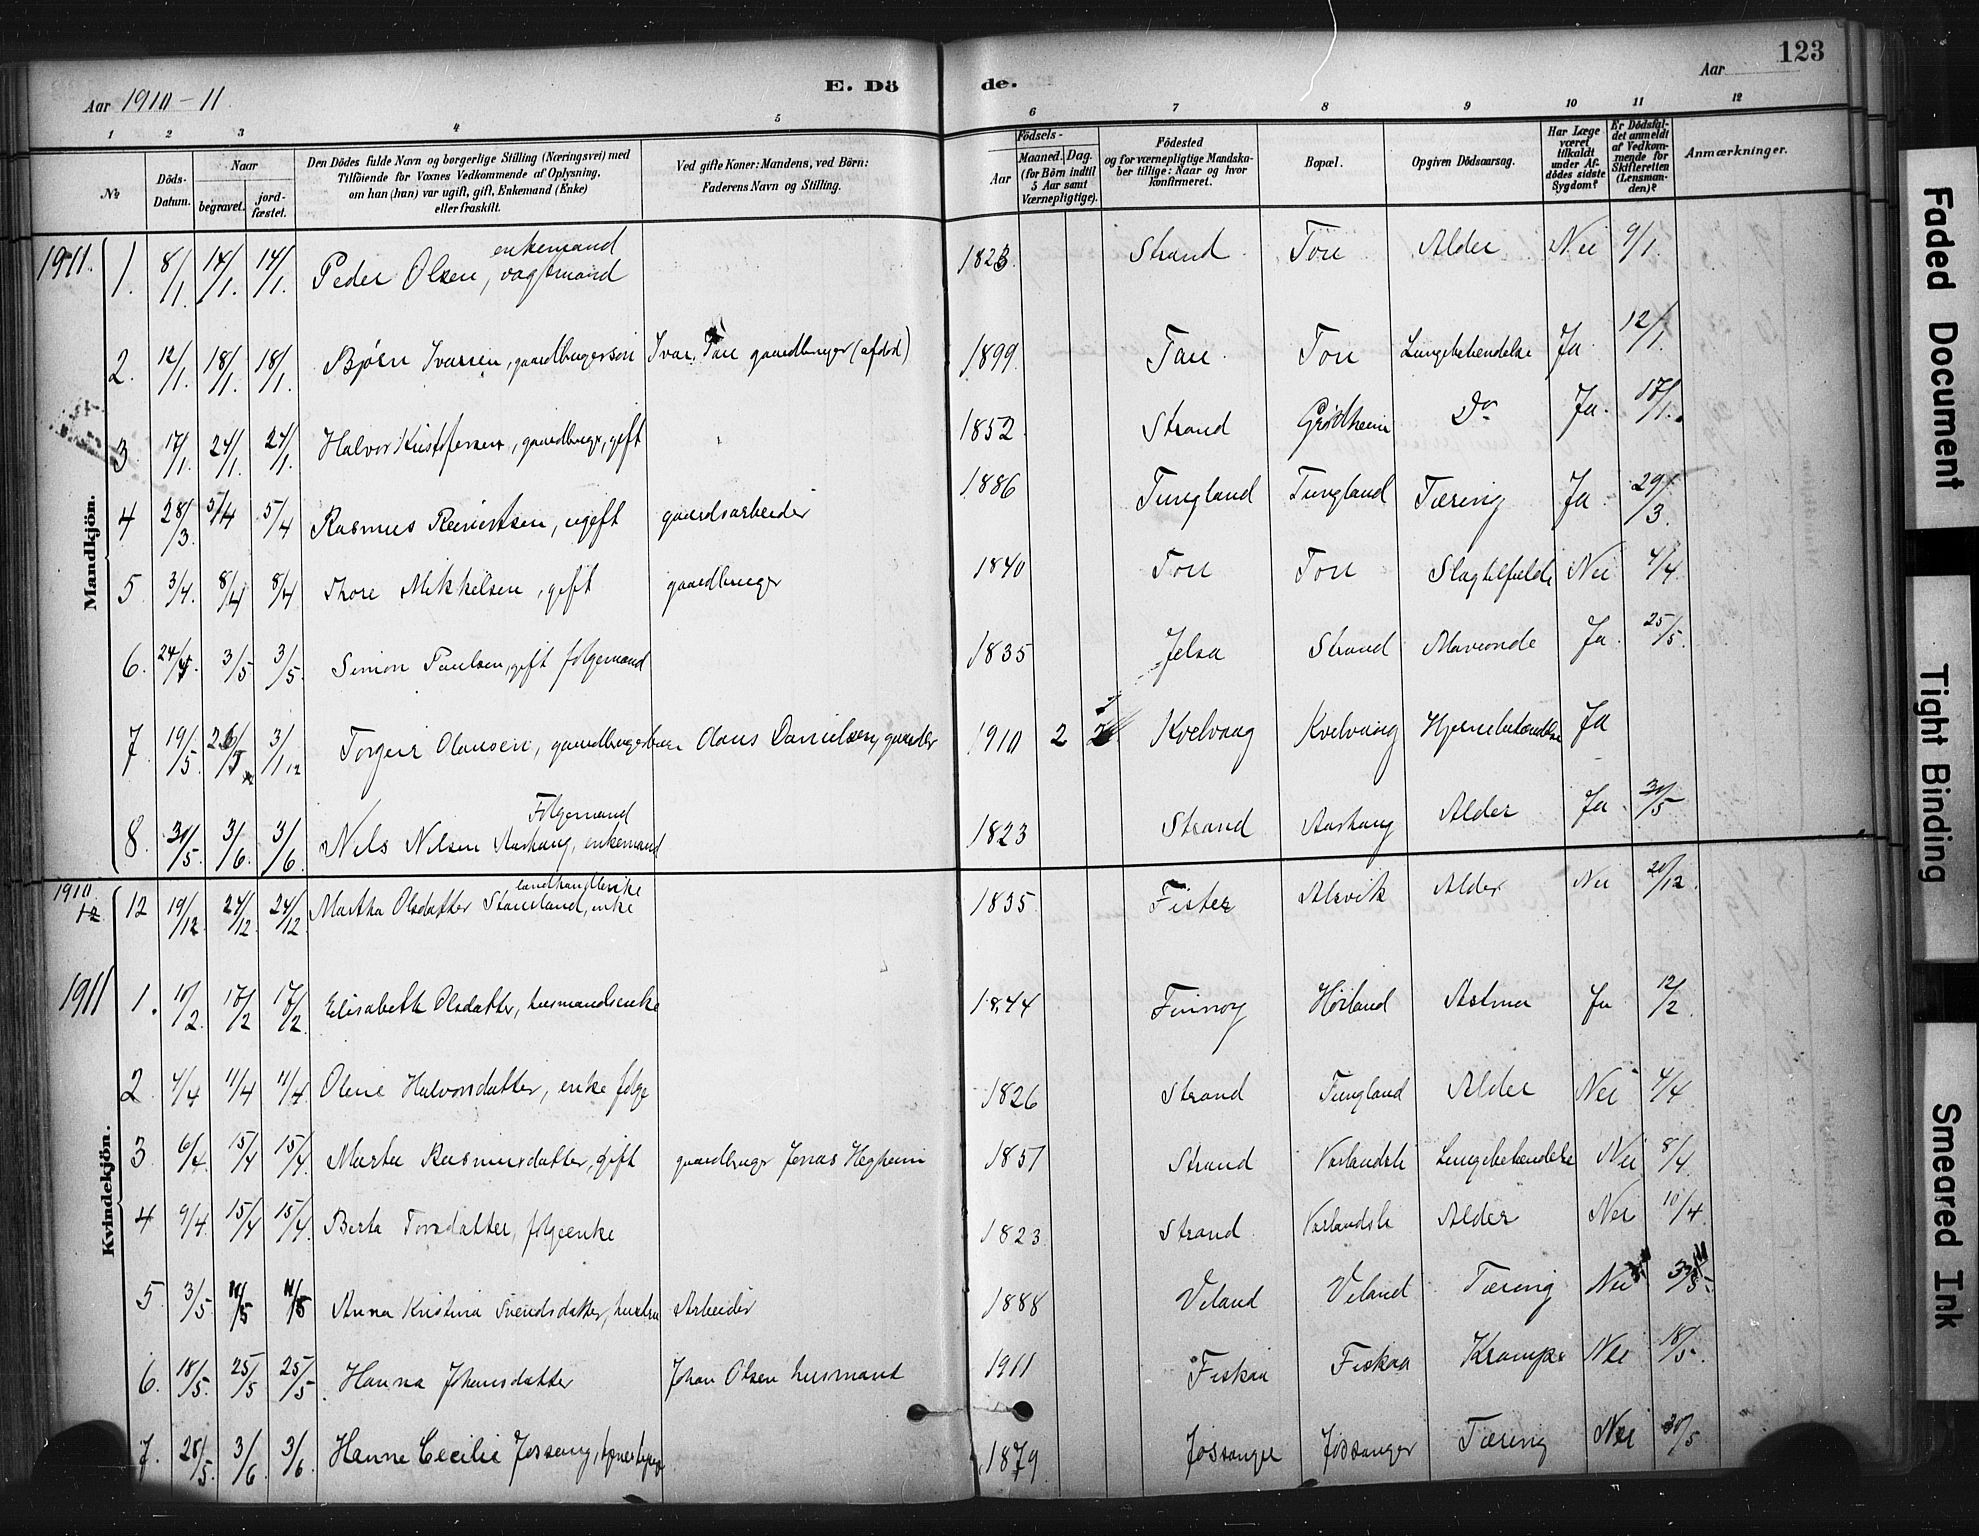 123
Aar 1910-11
E. Dö de.
Aar
1 2 3 4 5 6 7 8 9 10 11 12
№
Döds-Datum.
Naar
begravet.
jord-fæstet.
Den Dödes fulde Navn og borgerlige Stilling (Næringsvei) med
Tilföiende for Voxnes Vedkommende af Oplysning,
om han (hun) var ugift, gift, Enkemand (Enke)
eller fraskilt.
Ved gifte Koner: Mandens, ved Börn:
Faderens Navn og Stilling.
Födsels-
Aar
Maaned. Dag.
(for Börn indtil
5 Aar samt
Værnepligtige).
Födested
og for værnepligtige Mandska-
ber tillige: Naar og hvor
konfirmeret.
Bopæl.
Opgiven Dödsaarsag.
Har Læge
været
tilkaldt
under Af-
dödes sidste
Sygdom?
Er Dödsfal-
det anmeldt
af Vedkom-
mende for
Skifteretten
(Lensman-
den)?
Anmærkninger.
Mandkjön.
1911. 1. 8/1 14/1. 14/1. Peder Olsen, enkemand 1823. Strand Tou Alder Nei 9/1.
2. 12/1. 18/1. 18/1. Bjørn Ivarsen, gaardbrugersøn Ivar Tou gaardbruger (afdød) 1899. Tau Tou Lungebetændelse Ja 12/1.
3 17/1. 24/1. 24/1. Halvor Kristofersen, gaardbruger, gift 1852. Strand Grødheim Do Ja. 17/1.
4 28/3. 5/4 5/4 Rasmus Reiertsen, ugift gaardsarbeider 1886 Tungland Tungland Tæring Ja 29/3.
5. 3/4. 8/4 8/4 Thore Mikkelsen, gift gaardbruger 1840 Tou Tou Slagtilfælde Nei 4/4
6. 3/5 3/5. Simon Paulsen, gift følgemand 1835 Jelsa Strand Ja 25/5.
7. 19/5. 3/1 12 Torgeir Olausen, Olaus Danielsen, 1910 2 Kvelvaag Kvelvaag Hjernebetændelse Ja
8. 3/6. 3/6 Nils Nilsen Følgemand enkemand 1823 Strand Alder Ja 30/5
Kvindekjön.
1910 12 12 19/12. 24/12. 24/12 Martha Olsdatter landhandlerske enke 1835 Fister Alsvik Alder Nei 20/12.
1911 1. 10/2. 17/2 17/2. Elisabeth Olsdatter, husmandsenke 1844 Finnøy Hørland Astma Ja 12/2.
2. 4/4 11/4 11/4 Oline Halvorsdatter, enke følge 1826 Strand Tungland Alder Nei 4/4
3 6/4. 15/4 15/4. Marta Rasmusdatter, gift gaardbruger Jonas Hegheim 1851 Strand Vorlandsli Lungebetændelse Nei 8/4.
4 9/4 15/4 15/4. Berta Torsdatter, følgeenke 1823. Strand Vorlandsli Alder Nei 10/4.
5. 3/5. 11/5 11/5 Anna Kristina Svendsdatter, hustru Arbeider 1888 Veland Veland Tæring Nei
6. 18/5. 25/5 25/5. Hanna Johansdatter Johan Olsen husmand 1911 Fiskaa Fiskaa Krampe Nei 18/5.
7. 28/5. 3/6 3/6. Hanne Cecilie Jøssang, 1879 Jøssanger Jøssanger Tæring Nei 30/5.
Faded Document
Tight Binding
Smeared Ink